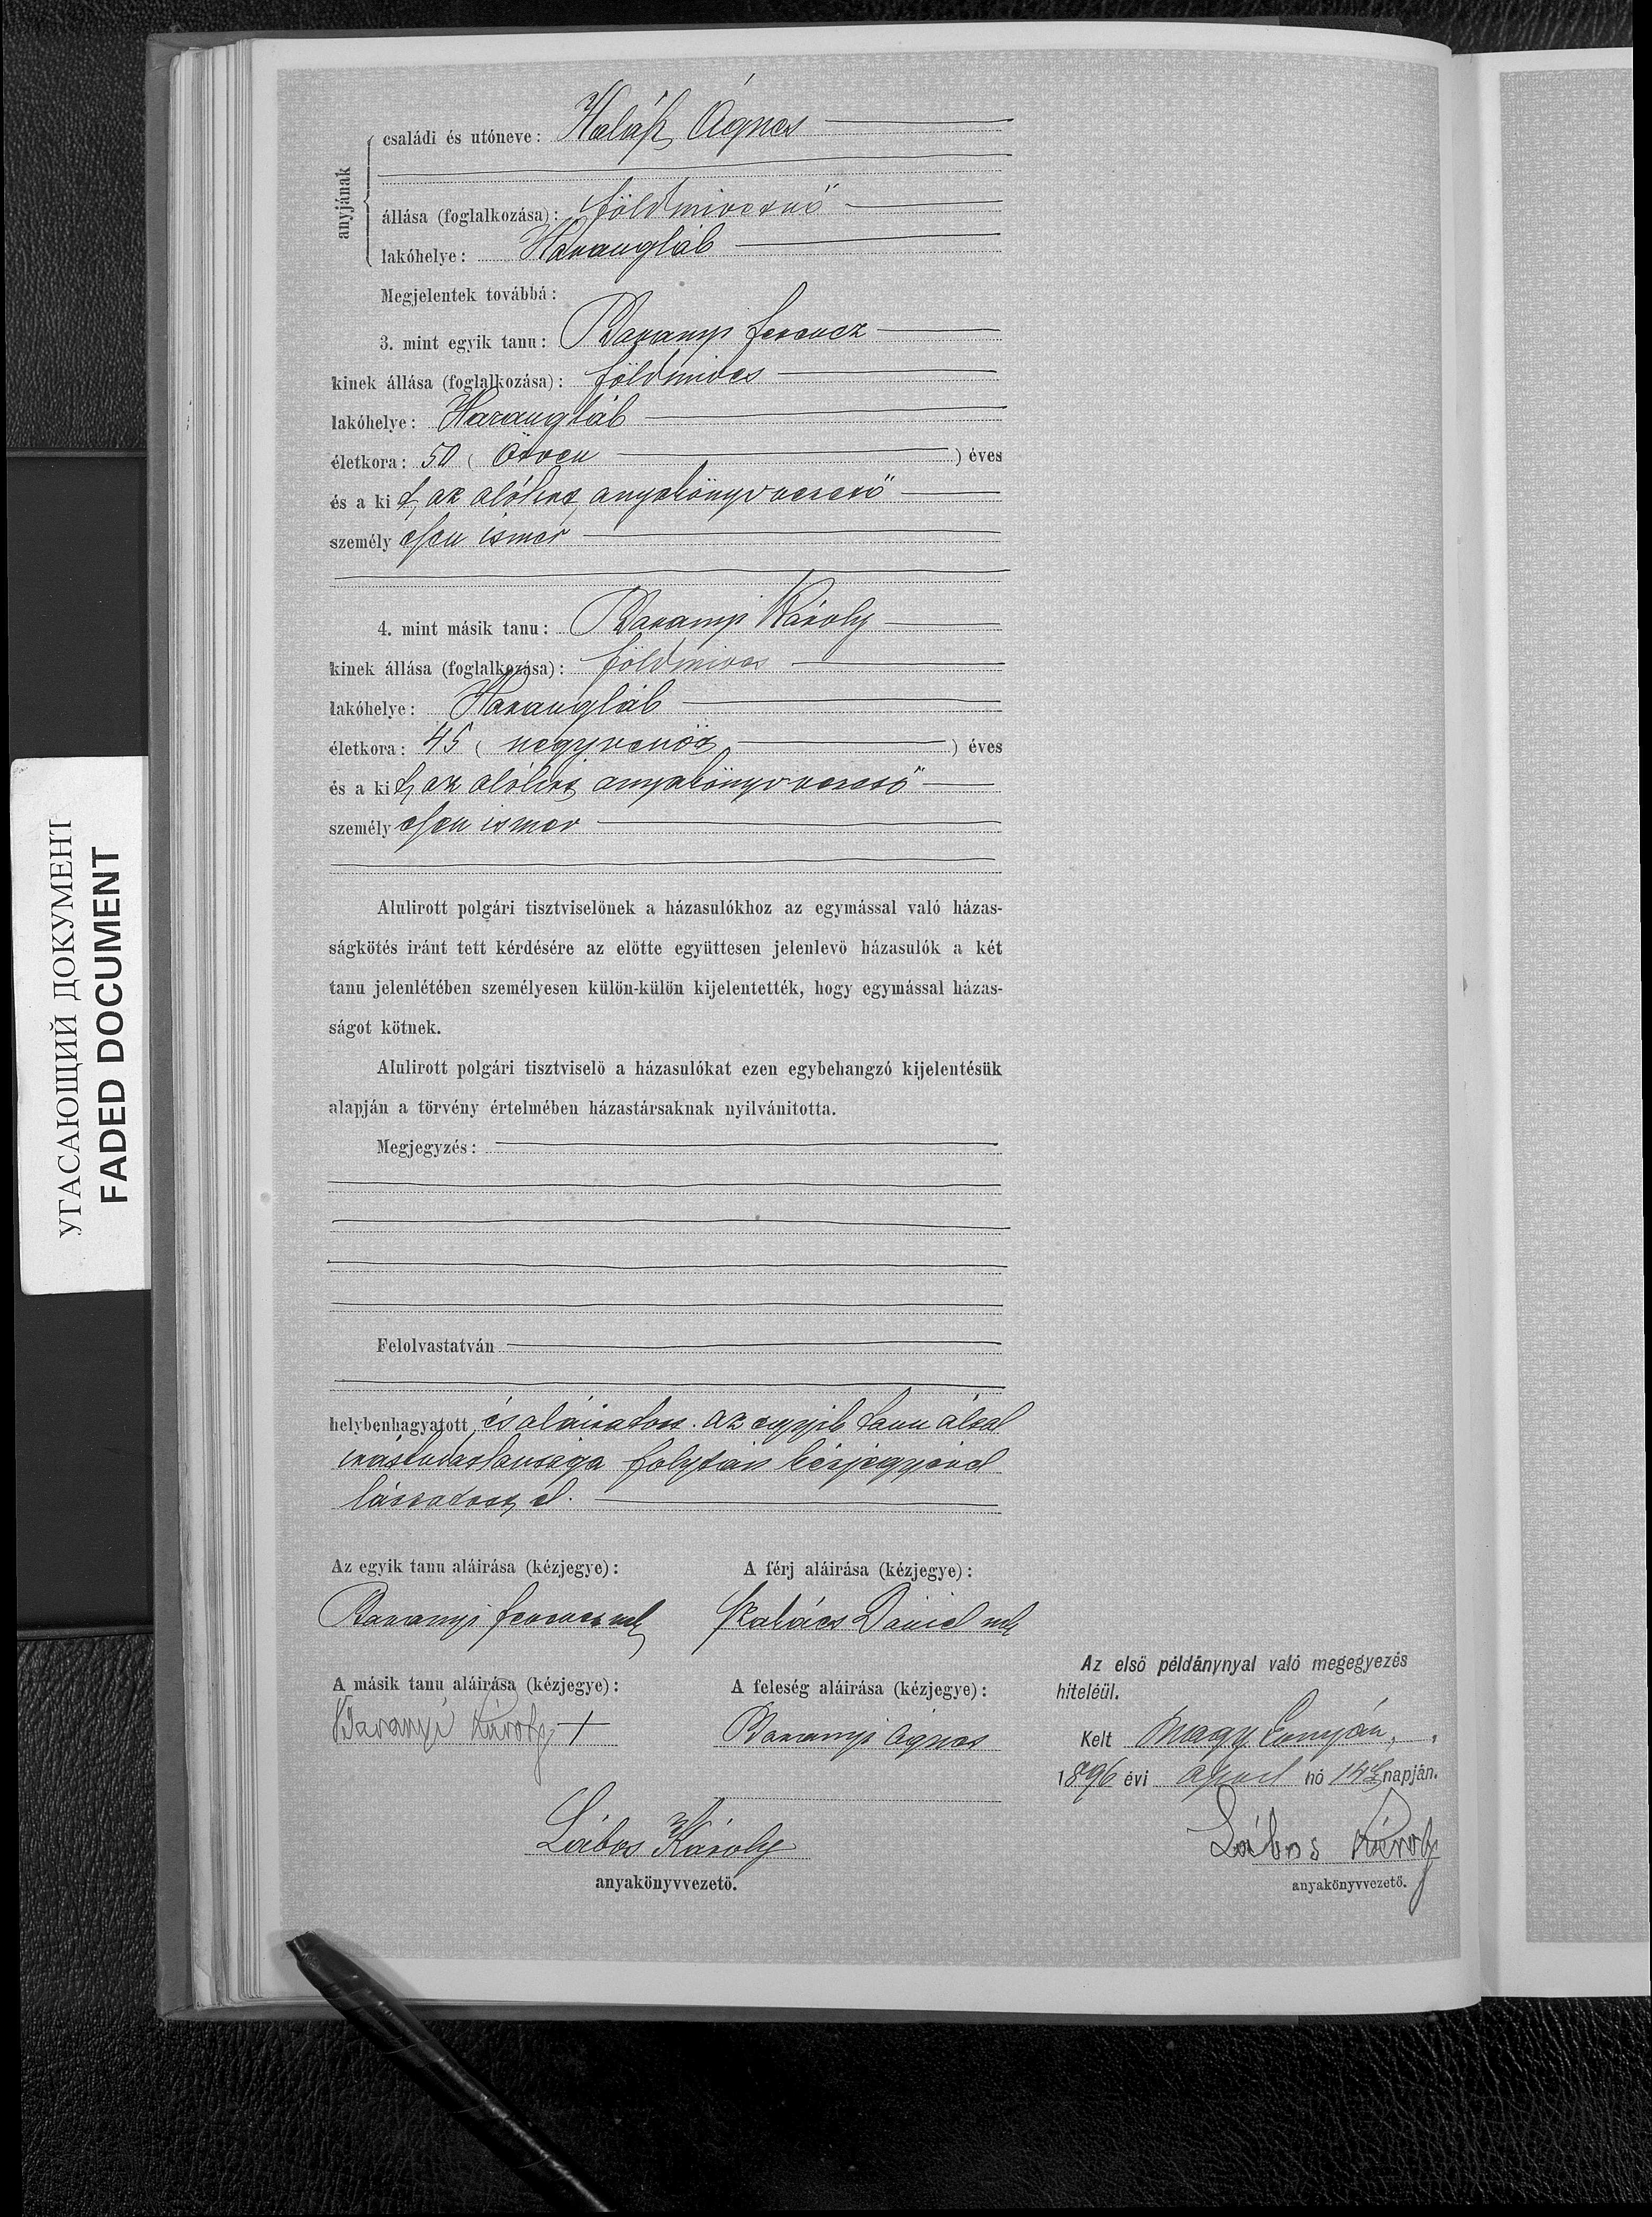 anyjának
családi és utóneve: Ágnes
állása (foglalkozása): földmivesnő
lakóhelye: Harangláb
Megjelentek továbbá:
3. mint egyik tanu: Baranyi Ferencz
kinek állása (foglalkozása): földmives
lakóhelye: Harangláb
életkora: 50 (Ötven) éves
és a ki t, az alólirt anyakönyvvezető
személyesen ismer
4. mint másik tanu: Baranyi Károly
kinek állása (foglalkozása): földmives
lakóhelye: Harangláb
életkora: 45 (negyvenöt) éves
és a ki t, az alólirt anyakönyvvezető
személyesen ismer
Alulirott polgári tisztviselönek a házasulókhoz az egymással való házas-
ságkötés iránt tett kérdésére az elötte együttesen jelenlevö házasulók a két
tanu jelenlétében személyesen külön-külön kijelentették, hogy egymással házas-
ságot kötnek.
Alulirott polgári tisztviselö a házasulókat ezen egybehangzó kijelentésük
alapján a törvény értelmében házastársaknak nyilvánitotta.
Megjegyzés:
Felolvastatván
helybenhagyatott és aláiratott. az egyik tanu által
irástudatlansága folytán kézjegyével
láttatott el.
Az egyik tanu aláirása (kézjegye):
A férj aláirása (kézjegye):
Baranyi Ferencz mk
Kalács Dániel mk
A másik tanu aláirása (kézjegye):
A feleség aláirása (kézjegye):
Baranyi Károly +
Baranyi Ágnes
Lábos Károly
anyakönyvvezetö.
Az első példánynyal való megegyezés
hiteléül.
Kelt Magy
1896 évi april hó 14 napján.
Lábos Károly
anyakönyvvezető.
УГАСАЮЩИЙ ДОКУМЕНТ
FADED DOCUMENT